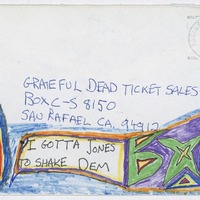 GRATEFUL DEAD TICKET SALES
BOX C-S 8150
SAN RAFAEL CA. 94912
I GOTTA JONES
TO SHAKE DEM